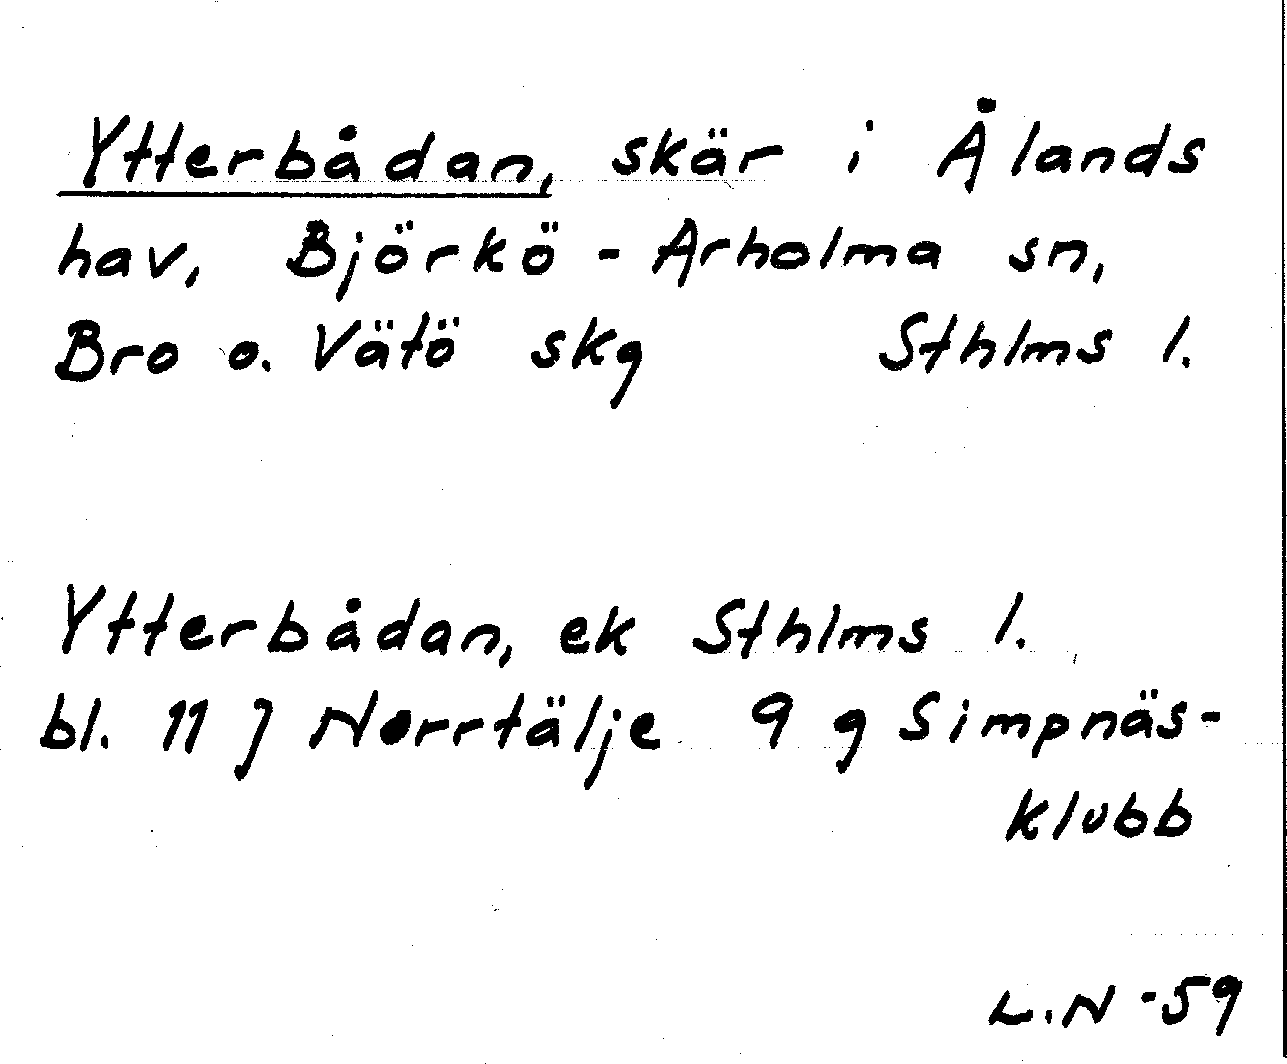 Ytterbådan, skär i Ålands
hav, Björkö-Arholma sn,
Bro o. Vätö skg Sthlms l.
Ytterbådan, ek Sthlms l.
bl. 11 J Norrtälje 9 g Simpnäs-
klubb
L.N -59